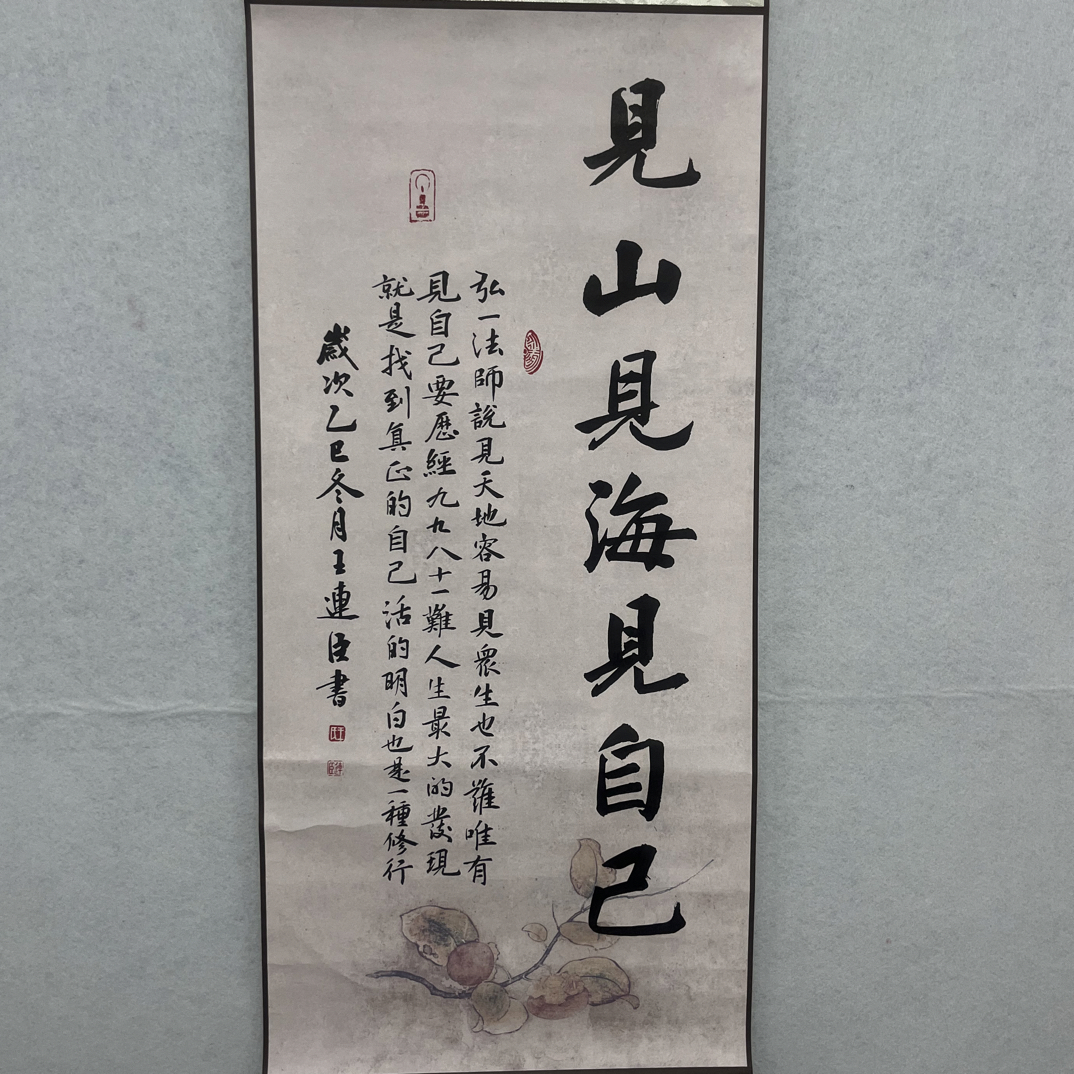 見山見海見自己
弘一法師說見天地容易見眾生也不難唯有
見自己要歷經九九八十一難人生最大的發現
就是找到真正的自己活的明白也是一種修行
歲次乙巳冬月王連臣書